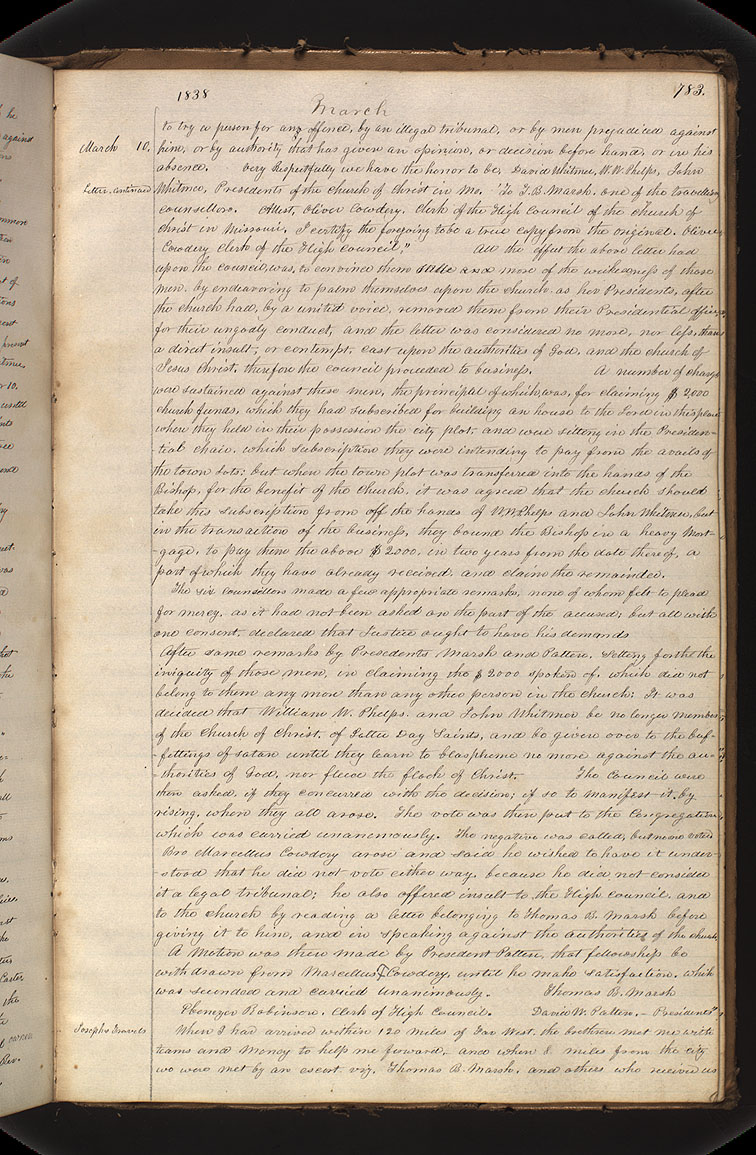 1838
783.
March
to try a person for any offence, by an illegal tribunal, or by men prejudiced against
March 10.
him, or by authority that has given an opinion, or decision before hand, or in his
absence. Very Respectfully we have the honor to be, David Whitmer, W. W. Phelps, John
Letter continued
Whitmer, Presidents of the church of Christ in Mo. To T. B. Marsh, one of the travelling
counsellors. Attest, Oliver Cowdery, Clerk of the High Council of the church of
Christ in Missouri. I certify the foregoing to be a true copy from the original. Oliver
Cowdery Clerk of the High Council." All the effect the above letter had
upon the council, was, to convince them still more of the wickedness of those
men, by endeavoring to palm themselves upon the church, as her Presidents, after
the church had, by a united voice, removed them from their Presidential office,
for their ungodly conduct; and the letter was considered no more, nor less, than
a direct insult, or contempt, cast upon the authorities of God, and the church of
Jesus christ, therefore the council proceeded to business. A number of charges
were sustained against these men, the principal of which was, for claiming $2,000
church funds, which they had subscribed for building an house to the Lord in this place
when they held in their possession the city plot, and were sitting in the Presiden-
-tial chair, which subscription they were intending to pay from the avails of
the town lots: but when the town plot was transferred into the hands of the
Bishop, for the benefit of the Church, it was agreed that the church should
take this subscription from off the hands of W. W. Phelps and John Whitmer, but
in the transaction of the business, they bound the Bishop in a heavy Mort-
-gage, to pay them the above $2000, in two years from the date thereof, a
part of which they have already received, and claim the remainder.
The six counsellors made a few appropriate remarks, none of whom felt to plead
for mercy, as it had not been asked on the part of the accused; but all with
one consent, declared that Justice ought to have his demands
After some remarks by Presidents Marsh and Patten, Setting forth the
iniquity of those men, in claiming the $2000 spoken of, which did not
belong to them any more than any other person in the church: It was
decided that William W. Phelps, and John Whitmer be no longer members
of the Church of Christ, of Latter Day Saints, and be given over to the buf-
-fettings of satan until they learn to blaspheme no more against the au-
-thorities of God, nor fleece the flock of Christ. The Council were
then asked, if they concurred with the decision; if so to manifest it, by
rising, when they all arose. The vote was then put to the Congregation,
which was carried unanimously. The negative was called, but none voted
Bro Marcellus Cowdery arose and said he wished to have it under-
-stood that he did not vote either way, because he did not consider
it a legal tribunal; he also offered insult to the High council, and
to the church by reading a letter belonging to Thomas B. Marsh before
giving it to him, and in speaking against the authorities of the church
A Motion was then made by President Patten, that fellowship be
withdrawn from Marcellus F Cowdery, until he make satisfaction, which
was seconded and carried unanimously. Thomas B. Marsh
Ebenezer Robinson, Clerk of High Council. David W. Patten, — Presidents"
Josephs travels
When I had arrived within 120 miles of Far West, the brethren met me with
teams and Money to help me forward, and when 8 miles from the city
we were met by an escort viz. Thomas B. Marsh, and others who received us